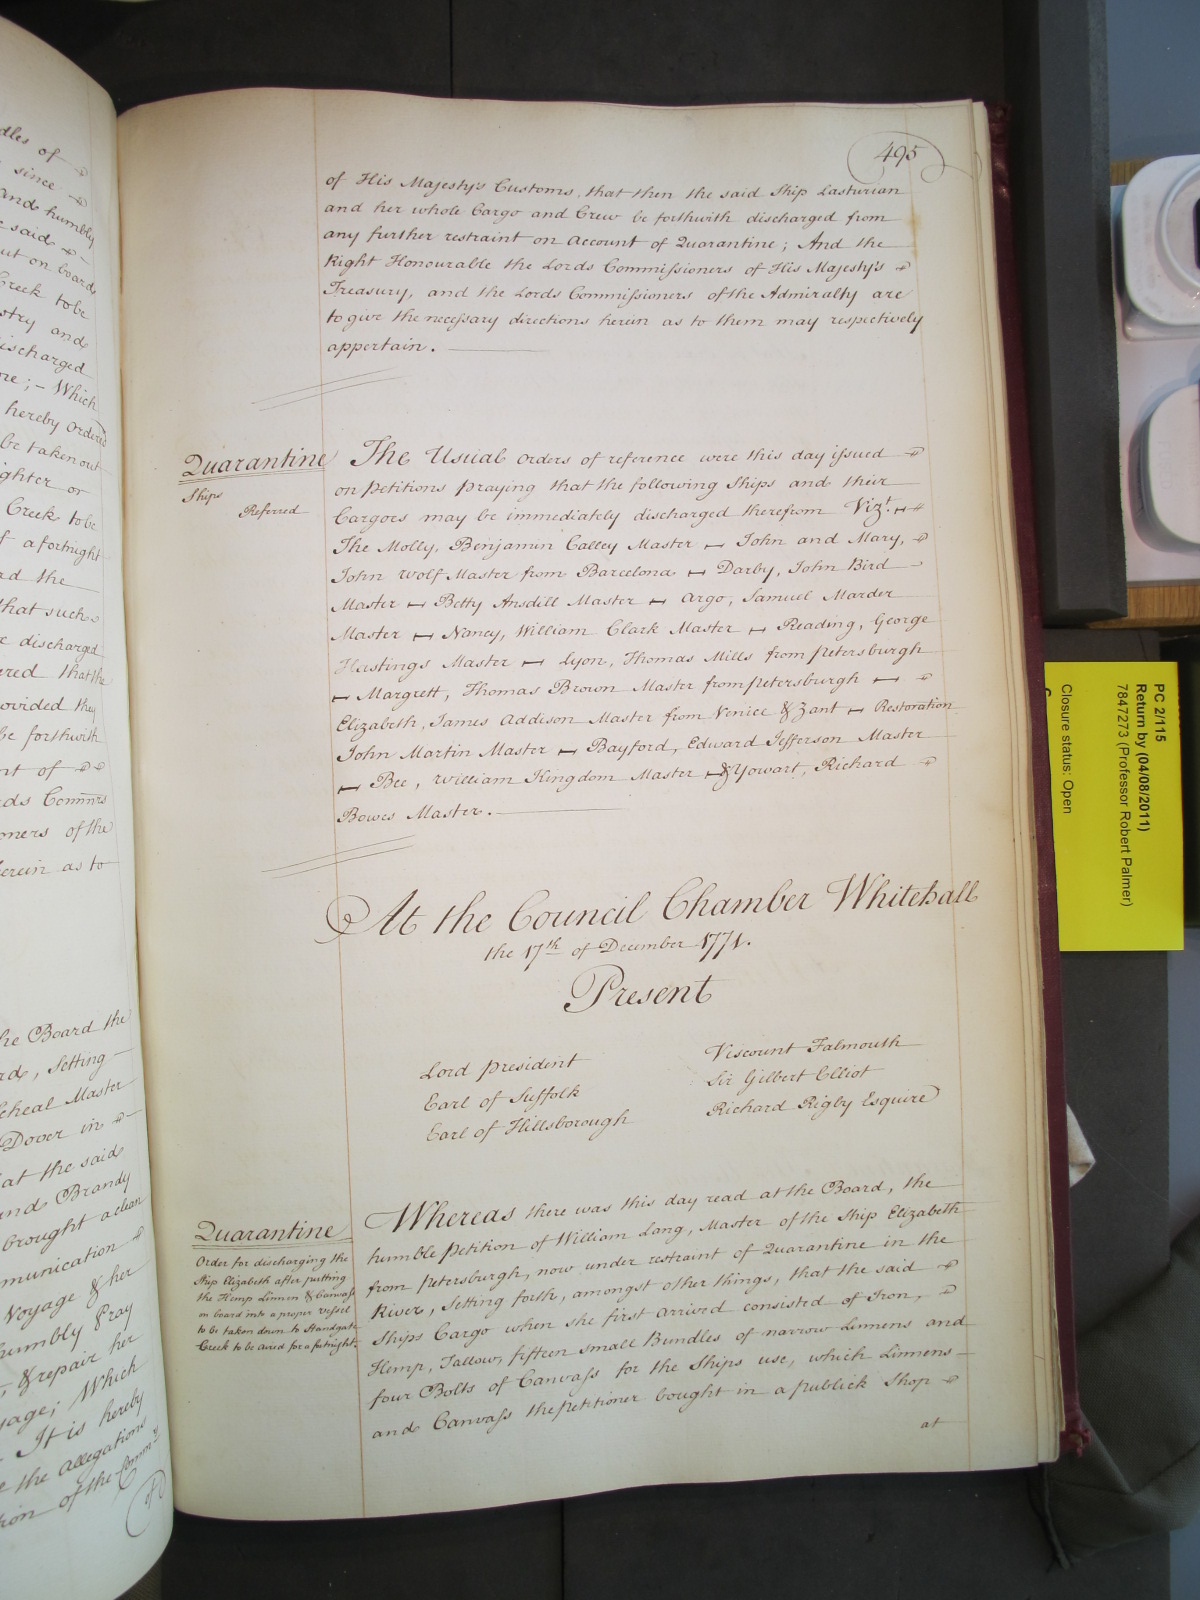 dles of
since
and humbly
said
ut on board
Creek to be
stry and
ischarged
re; - Which
hereby Ordered
be taken out
ighter or
Creek to be
f a fortnight
ad the
that such
e discharged
ered that the
rovided they
be forthwith
nt of
ds Commrs
oners of the
herein as to
he Board the
rd, Setting
cheal Master
Dover in
at the said
and Brandy
brought a clean
mmunication
Voyage & her
humbly Pray
& repair her
yage; Which
It is hereby
e the allegations
tion of the Commrs
495
of His Majesty's Customs, that then the said Ship Lasturian
and her whole Cargo and Crew be forthwith discharged from
any further restraint on account of Quarantine; And the
Right Honourable the Lords Commissioners of His Majesty's
Treasury, and the Lords Commissioners of the Admiralty are
to give the necessary directions herein as to them may respectively
appertain.
Quarantine
Ships
Referred
The Usual Orders of reference were this day issued
on Petitions praying that the following Ships and their
Cargoes may be immediately discharged therefrom Vizt.
The Molly, Benjamin Calley Master - John and Mary,
John Wolf Master from Barcelona - Darby, John Bird
Master - Betty Ansdill Master - Argo, Samuel Marder
Master - Nancy, William Clark Master - Reading, George
Hastings Master - Lyon, Thomas Mills from Petersburgh
- Margrett, Thomas Brown Master from Petersburgh -
Elizabeth, James Addison Master from Venice & Zant - Restoration
John Martin Master - Bayford, Edward Jefferson Master
- Bee, William Kingdom Master - & Yowart, Richard
Bowes Master.
At the Council Chamber Whitehall
the 17th of December 1771.
Present
Lord President
Earl of Suffolk
Earl of Hillsborough
Viscount Falmouth
Sir Gilbert Elliot
Richard Rigby Esquire
Quarantine
Order for discharging the
Ship Elizabeth after putting
the Hemp Linnen & Canvass
on board into a proper Vessel
to be taken down to Standgate
Creek to be aired for a fortnight.
Whereas there was this day read at the Board, the
humble Petition of William Lang, Master of the Ship Elizabeth
from Petersburgh, now under restraint of Quarantine in the
River, Setting forth, amongst other things, that the said
Ships Cargo when she first arrived consisted of Iron,
Hemp, Tallow, fifteen small Bundles of narrow Linnens and
four Bolts of Canvass for the Ships use, which Linnens
and Canvass the Petitioner bought in a publick Shop
at
PC 2/115
Return by (04/08/2011)
7847273 (Professor Robert Palmer)
Closure status: Open